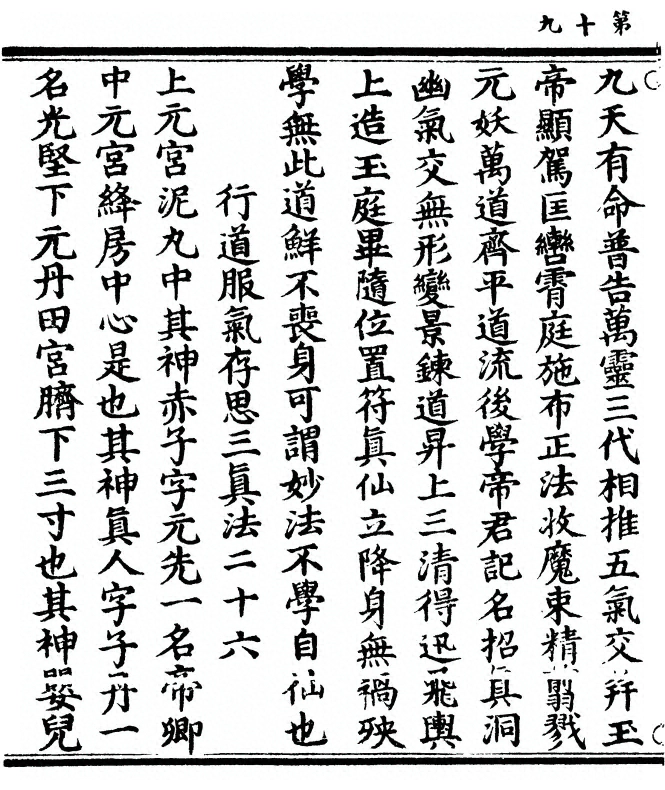 第十九
九天有命普告萬靈三代相推五氣交并玉
帝顯駕匡轡霄庭施布正法收魔束精翦戮
元妖萬道齊平道流後學帝君記名招真洞
幽氣交無形變景鍊道昇上三清得迅飛輿
上造玉庭畢隨位置符真仙立降身無禍殃
學無此道鮮不喪身可謂妙法不學自仙也
行道服氣存思三真法二十六
上元宮泥丸中其神赤子字元先一名帝卿
中元宮絳房中心是也其神真人字子丹一
名光堅下元丹田宮臍下三寸也其神嬰兒